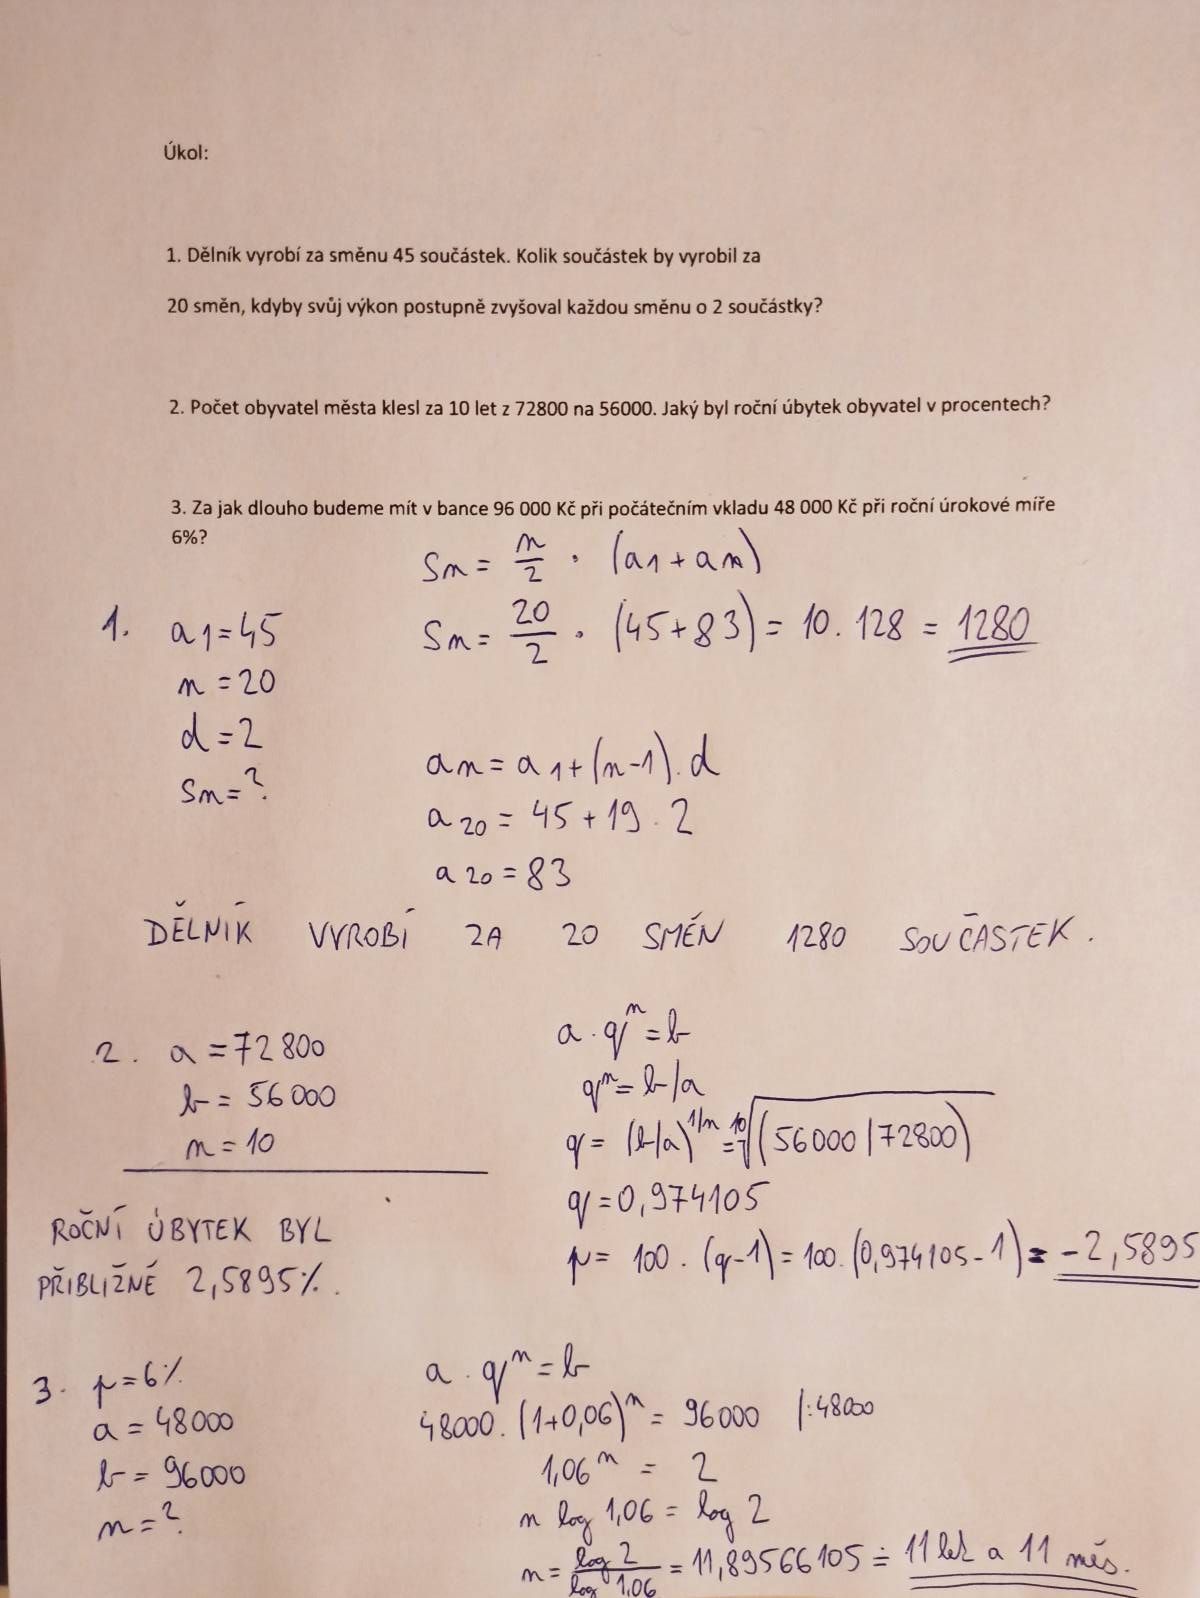 Úkol:
1. Dělník vyrobí za směnu 45 součástek. Kolik součástek by vyrobil za
20 směn, kdyby svůj výkon postupně zvyšoval každou směnu o 2 součástky?
2. Počet obyvatel města klesl za 10 let z 72800 na 56000. Jaký byl roční úbytek obyvatel v procentech?
3. Za jak dlouho budeme mít v bance 96 000 Kč při počátečním vkladu 48 000 Kč při roční úrokové míře
6%?
1. a1=45
n=20
d=2
Sn=?
Sn = n/2 · (a1+an)
Sn = 20/2 · (45+83) = 10. 128 = 1280
an = a1+(n-1).d
a20 = 45+19.2
a20 = 83
DĚLNÍK VYROBÍ ZA 20 SMĚN 1280 SOUČÁSTEK.
2. a=72800
b=56000
n=10
ROČNÍ ÚBYTEK BYL
PŘIBLIŽNĚ 2,5895%.
a·qⁿ=b
qⁿ=b/a
q= (b/a)^1/n = ¹⁰√(56000/72800)
q=0,974105
p= 100.(q-1)=100.(0,974105-1)= -2,5895
3. p=6%
a=48000
b=96000
n=?
a.qⁿ=b
48000.(1+0,06)ⁿ= 96000 /:48000
1,06ⁿ = 2
n log 1,06 = log 2
n= log 2/log 1,06 = 11,89566105 ≐ 11 let a 11 měs.